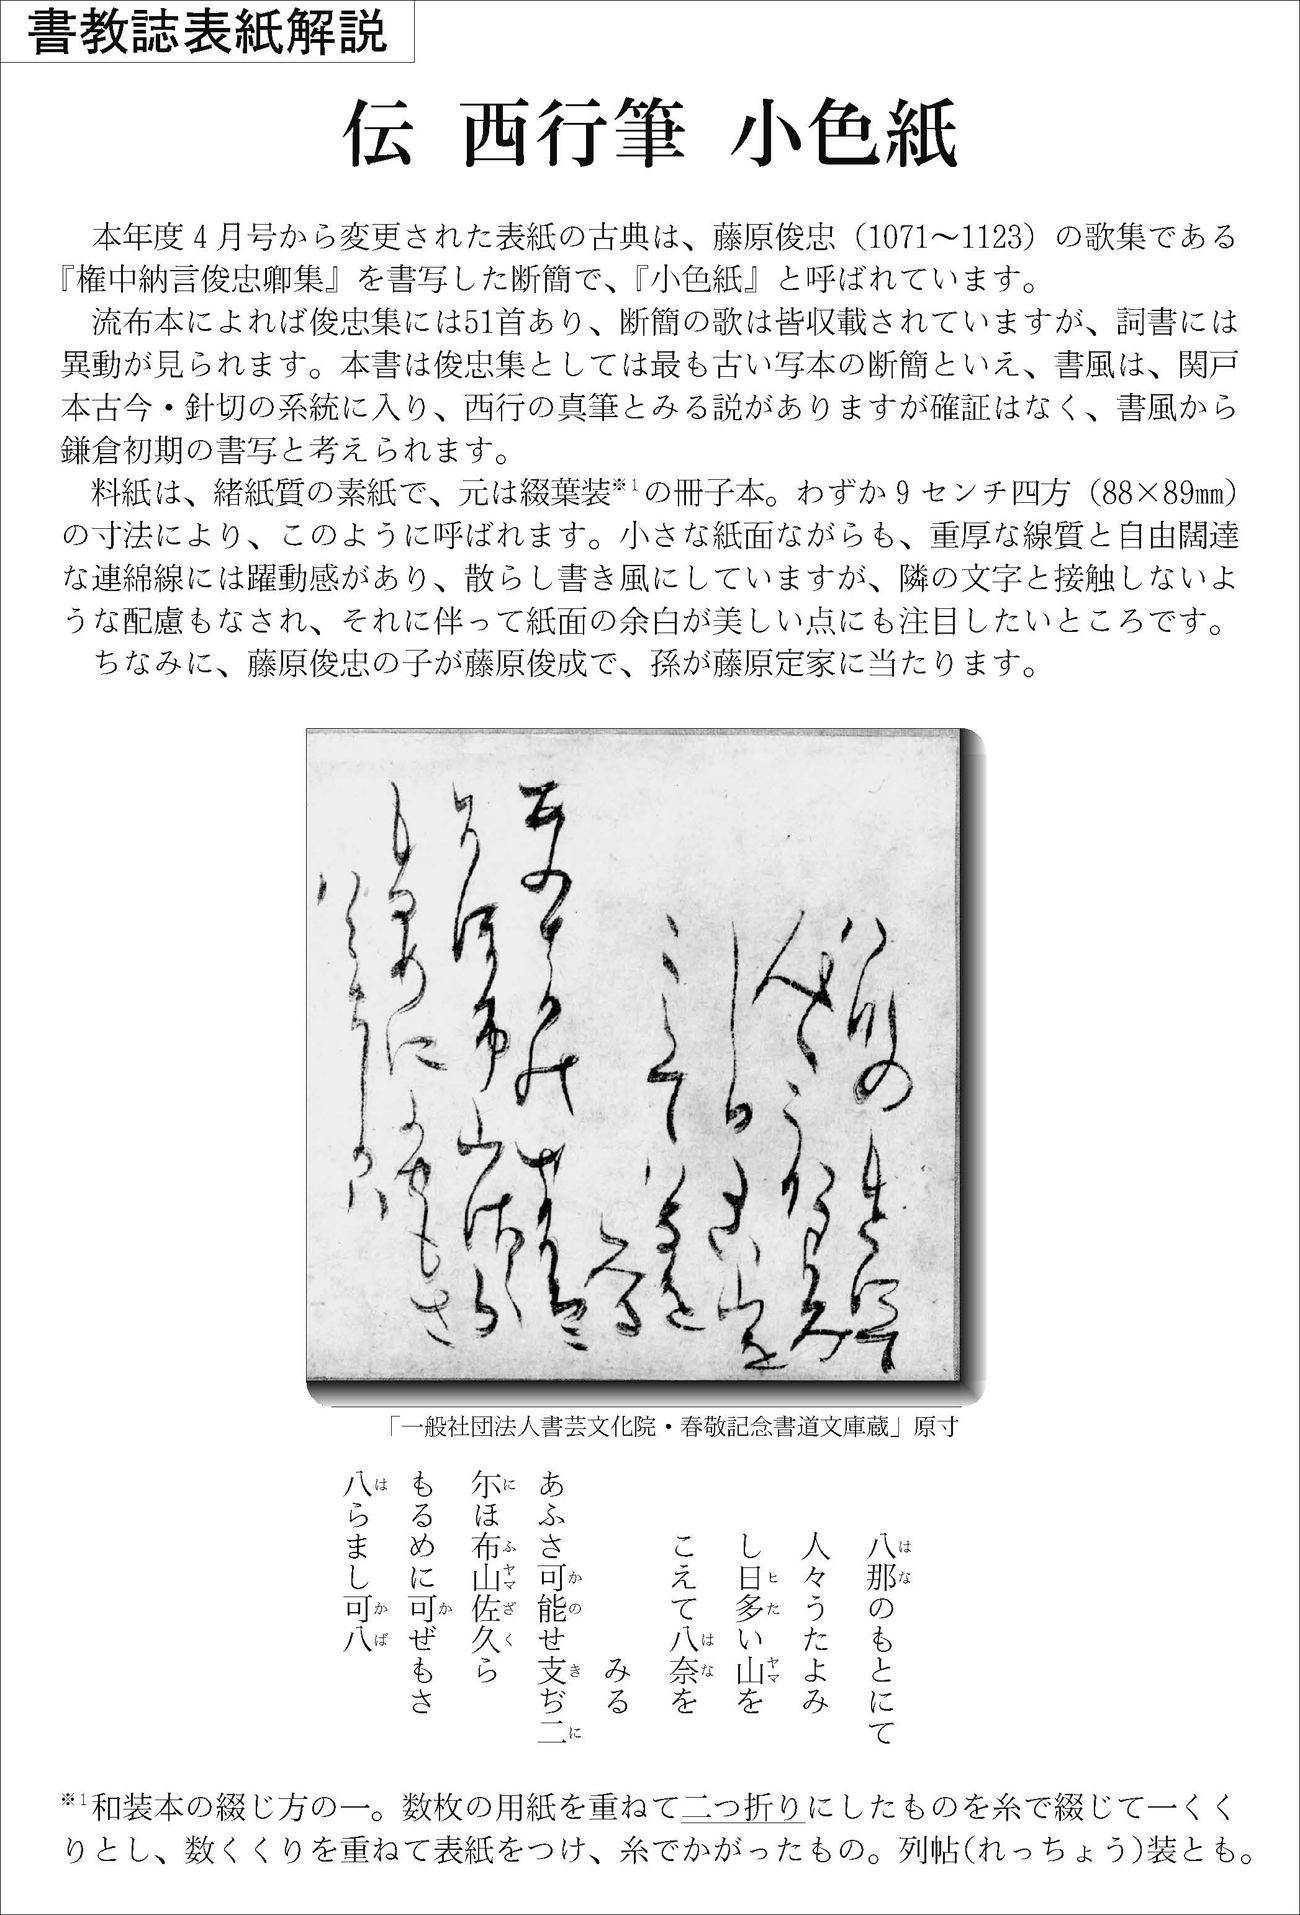 書教誌表紙解説
伝 西行筆 小色紙
本年度4月号から変更された表紙の古典は、藤原俊忠（1071～1123）の歌集である
『権中納言俊忠卿集』を書写した断簡で、『小色紙』と呼ばれています。
流布本によれば俊忠集には51首あり、断簡の歌は皆収載されていますが、詞書には
異動が見られます。本書は俊忠集としては最も古い写本の断簡といえ、書風は、関戸
本古今・針切の系統に入り、西行の真筆とみる説がありますが確証はなく、書風から
鎌倉初期の書写と考えられます。
料紙は、緒紙質の素紙で、元は綴葉装※1の冊子本。わずか9センチ四方（88×89㎜）
の寸法により、このように呼ばれます。小さな紙面ながらも、重厚な線質と自由闊達
な連綿線には躍動感があり、散らし書き風にしていますが、隣の文字と接触しないよ
うな配慮もなされ、それに伴って紙面の余白が美しい点にも注目したいところです。
ちなみに、藤原俊忠の子が藤原俊成で、孫が藤原定家に当たります。
「一般社団法人書芸文化院・春敬記念書道文庫蔵」原寸
八那のもとにて
はな
人々うたよみ
し日多い山を
ヒた ヤマ
こえて八奈を
はな
みる
あふさ可能せ支ぢ二
かの き に
尓ほ布山佐久ら
に ふヤマざく
もるめに可ぜもさ
か
八らまし可八
は かば
※1和装本の綴じ方の一。数枚の用紙を重ねて二つ折りにしたものを糸で綴じて一くく
りとし、数くくりを重ねて表紙をつけ、糸でかがったもの。列帖(れっちょう)装とも。